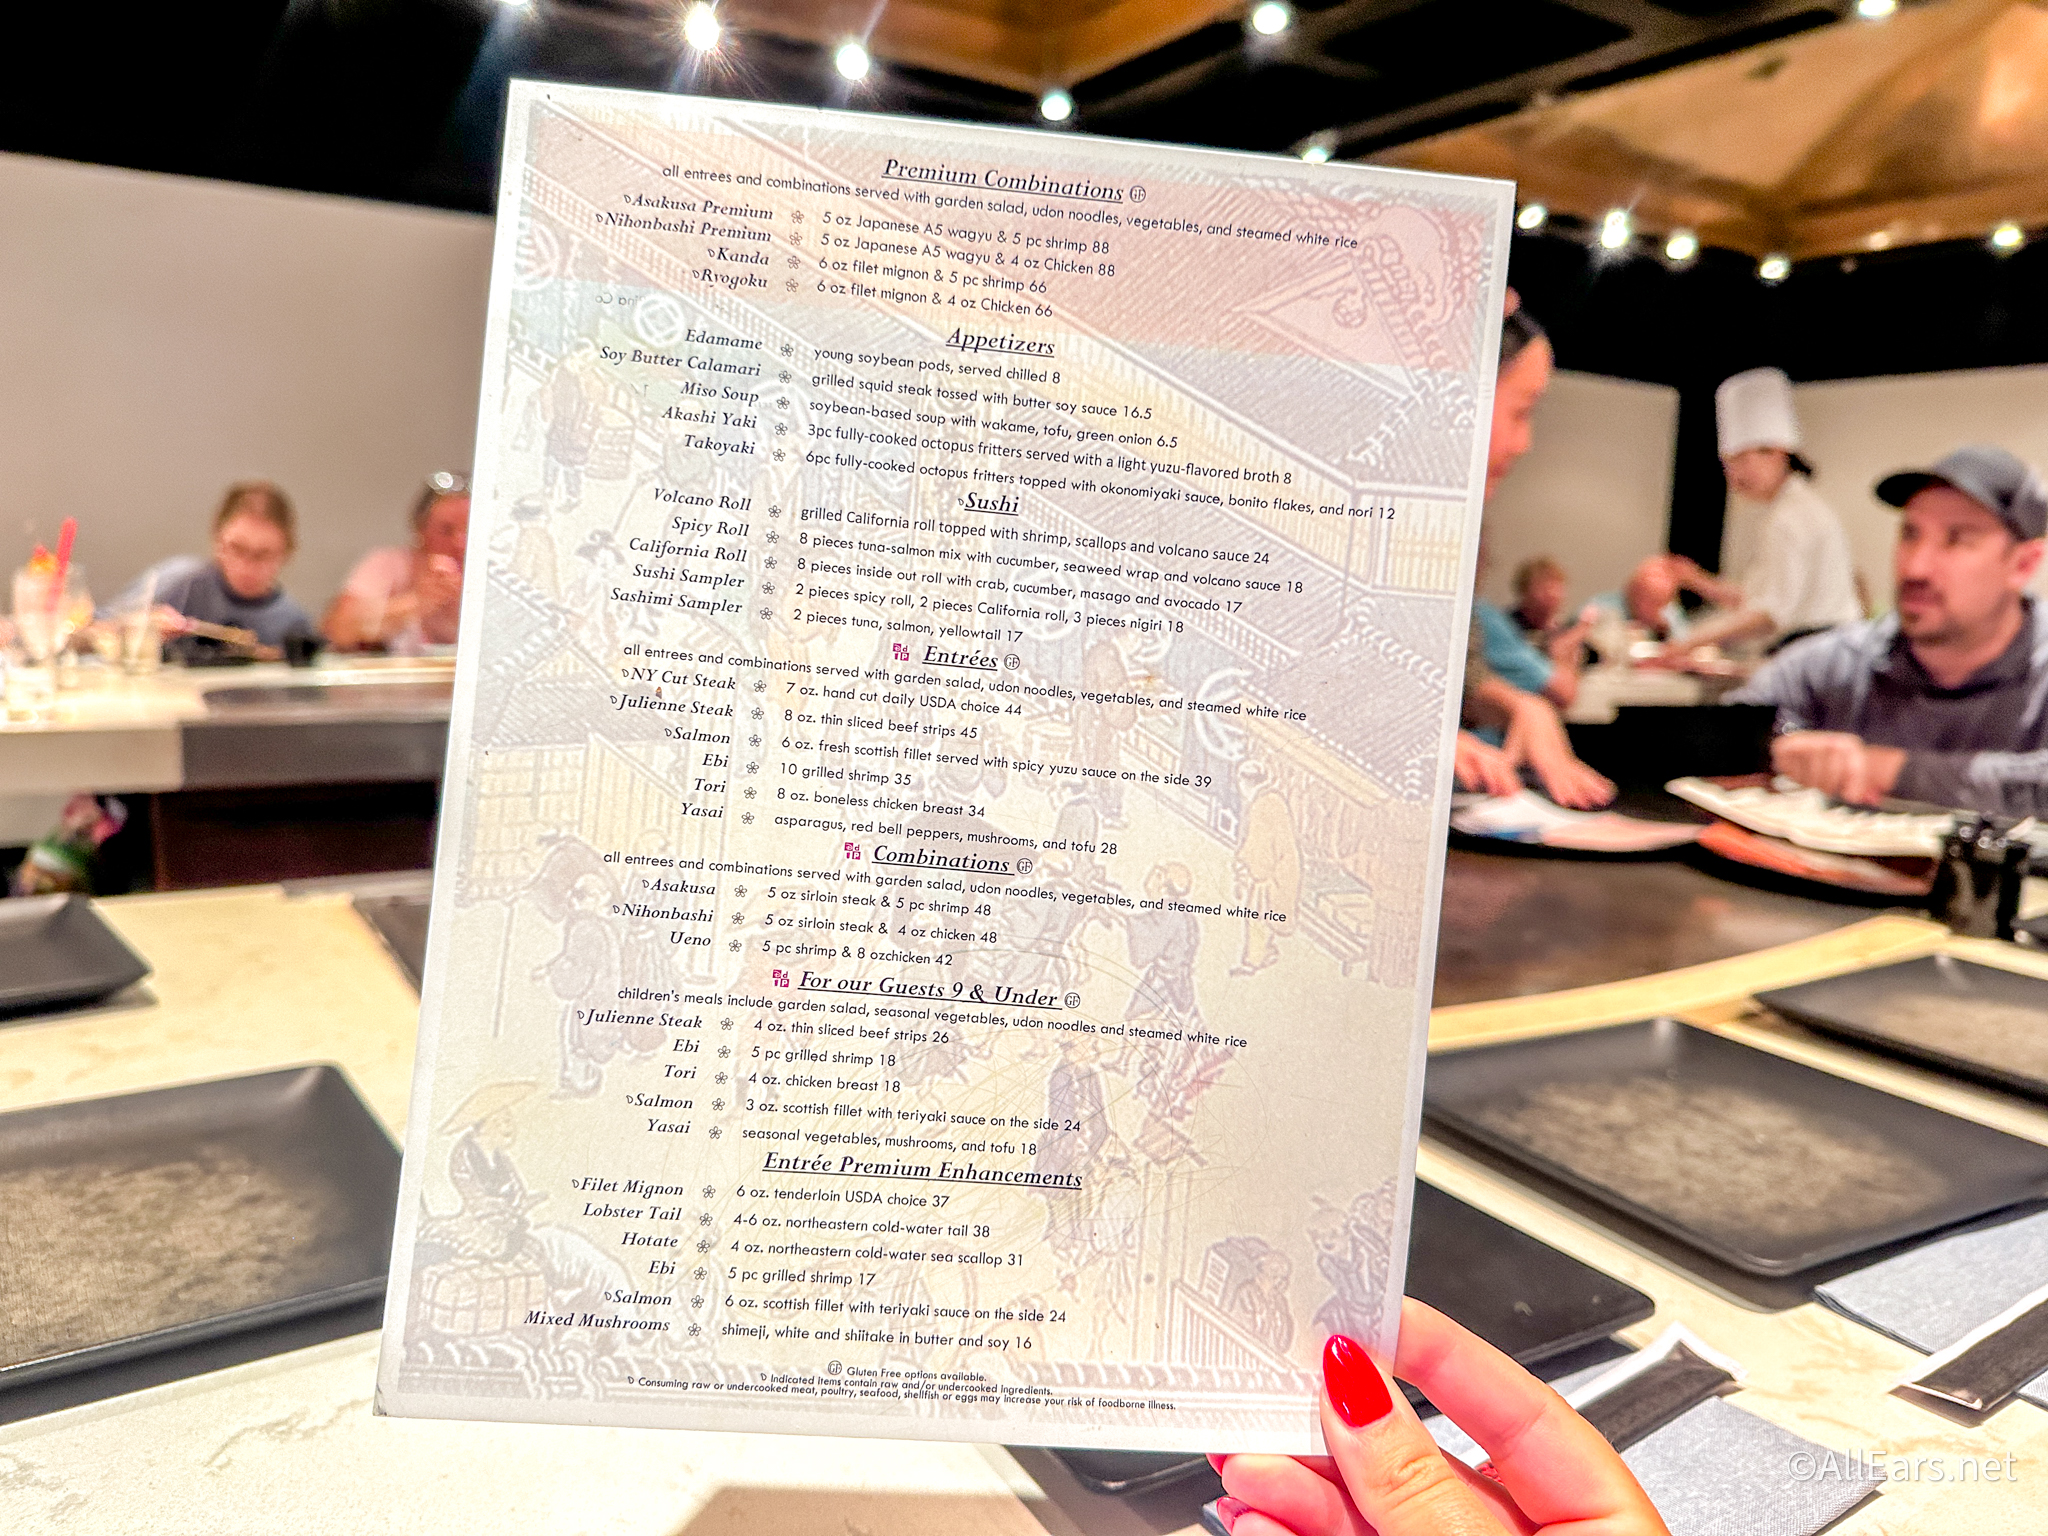 Premium Combinations GF
all entrees and combinations served with garden salad, udon noodles, vegetables, and steamed white rice
Asakusa Premium 5 oz Japanese A5 wagyu & 5 pc shrimp 88
Nihonbashi Premium 5 oz Japanese A5 wagyu & 4 oz Chicken 88
Kanda 6 oz filet mignon & 5 pc shrimp 66
Ryogoku 6 oz filet mignon & 4 oz Chicken 66
Appetizers
Edamame young soybean pods, served chilled 8
Soy Butter Calamari grilled squid steak tossed with butter soy sauce 16.5
Miso Soup soybean-based soup with wakame, tofu, green onion 6.5
Akashi Yaki 3pc fully-cooked octopus fritters served with a light yuzu-flavored broth 8
Takoyaki 6pc fully-cooked octopus fritters topped with okonomiyaki sauce, bonito flakes, and nori 12
Sushi
Volcano Roll grilled California roll topped with shrimp, scallops and volcano sauce 24
Spicy Roll 8 pieces tuna-salmon mix with cucumber, seaweed wrap and volcano sauce 18
California Roll 8 pieces inside out roll with crab, cucumber, masago and avocado 17
Sushi Sampler 2 pieces spicy roll, 2 pieces California roll, 3 pieces nigiri 18
Sashimi Sampler 2 pieces tuna, salmon, yellowtail 17
Entrées GF
all entrees and combinations served with garden salad, udon noodles, vegetables, and steamed white rice
NY Cut Steak 7 oz. hand cut daily USDA choice 44
Julienne Steak 8 oz. thin sliced beef strips 45
Salmon 6 oz. fresh scottish fillet served with spicy yuzu sauce on the side 39
Ebi 10 grilled shrimp 35
Tori 8 oz. boneless chicken breast 34
Yasai asparagus, red bell peppers, mushrooms, and tofu 28
Combinations GF
all entrees and combinations served with garden salad, udon noodles, vegetables, and steamed white rice
Asakusa 5 oz sirloin steak & 5 pc shrimp 48
Nihonbashi 5 oz sirloin steak & 4 oz chicken 48
Ueno 5 pc shrimp & 8 ozchicken 42
For our Guests 9 & Under GF
children's meals include garden salad, seasonal vegetables, udon noodles and steamed white rice
Julienne Steak 4 oz. thin sliced beef strips 26
Ebi 5 pc grilled shrimp 18
Tori 4 oz. chicken breast 18
Salmon 3 oz. scottish fillet with teriyaki sauce on the side 24
Yasai seasonal vegetables, mushrooms, and tofu 18
Entrée Premium Enhancements
Filet Mignon 6 oz. tenderloin USDA choice 37
Lobster Tail 4-6 oz. northeastern cold-water tail 38
Hotate 4 oz. northeastern cold-water sea scallop 31
Ebi 5 pc grilled shrimp 17
Salmon 6 oz. scottish fillet with teriyaki sauce on the side 24
Mixed Mushrooms shimeji, white and shiitake in butter and soy 16
GF Gluten Free options available.
Indicated items contain raw and/or undercooked ingredients.
Consuming raw or undercooked meat, poultry, seafood, shellfish or eggs may increase your risk of foodborne illness.
©AllEars.net